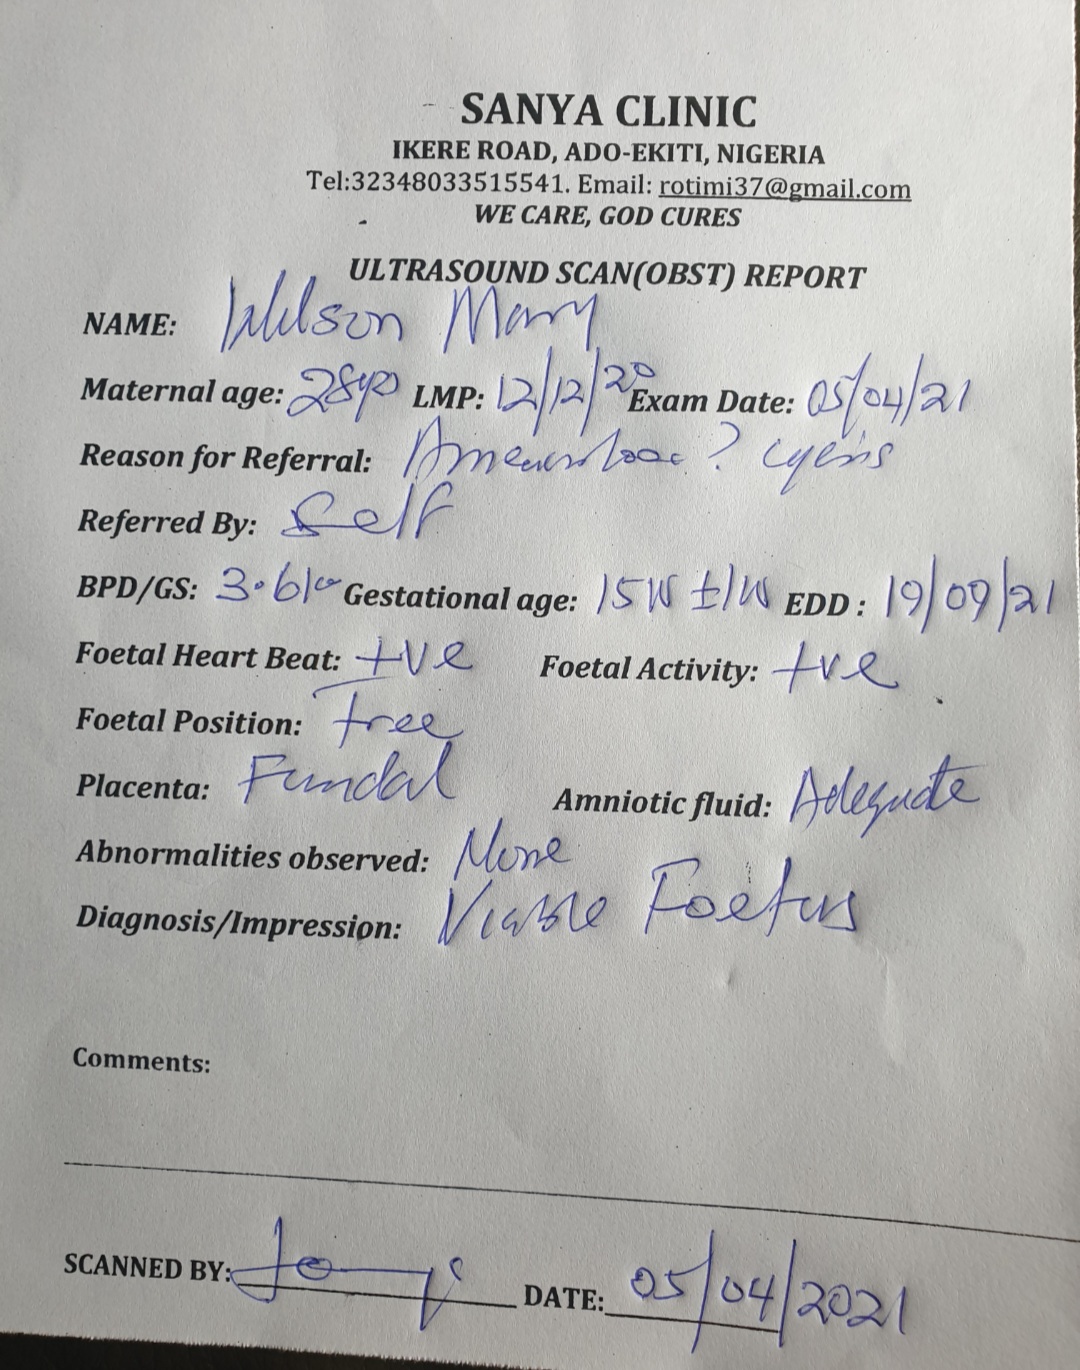 SANYA CLINIC
IKERE ROAD, ADO-EKITI, NIGERIA
Tel:32348033515541. Email: rotimi37@gmail.com
WE CARE, GOD CURES
ULTRASOUND SCAN(OBST) REPORT
NAME: Wilson Mary
Maternal age: 28yrs LMP: 12/12/20 Exam Date: 05/04/21
Reason for Referral: ? cyesis
Referred By: Self
BPD/GS: Gestational age: 15W ±1W EDD : 19/09/21
Foetal Heart Beat: +ve Foetal Activity: +ve
Foetal Position: Free
Placenta: Fundal Amniotic fluid: Adequate
Abnormalities observed: None
Diagnosis/Impression: Viable Foetus
Comments:
SCANNED BY: DATE: 05/04/2021